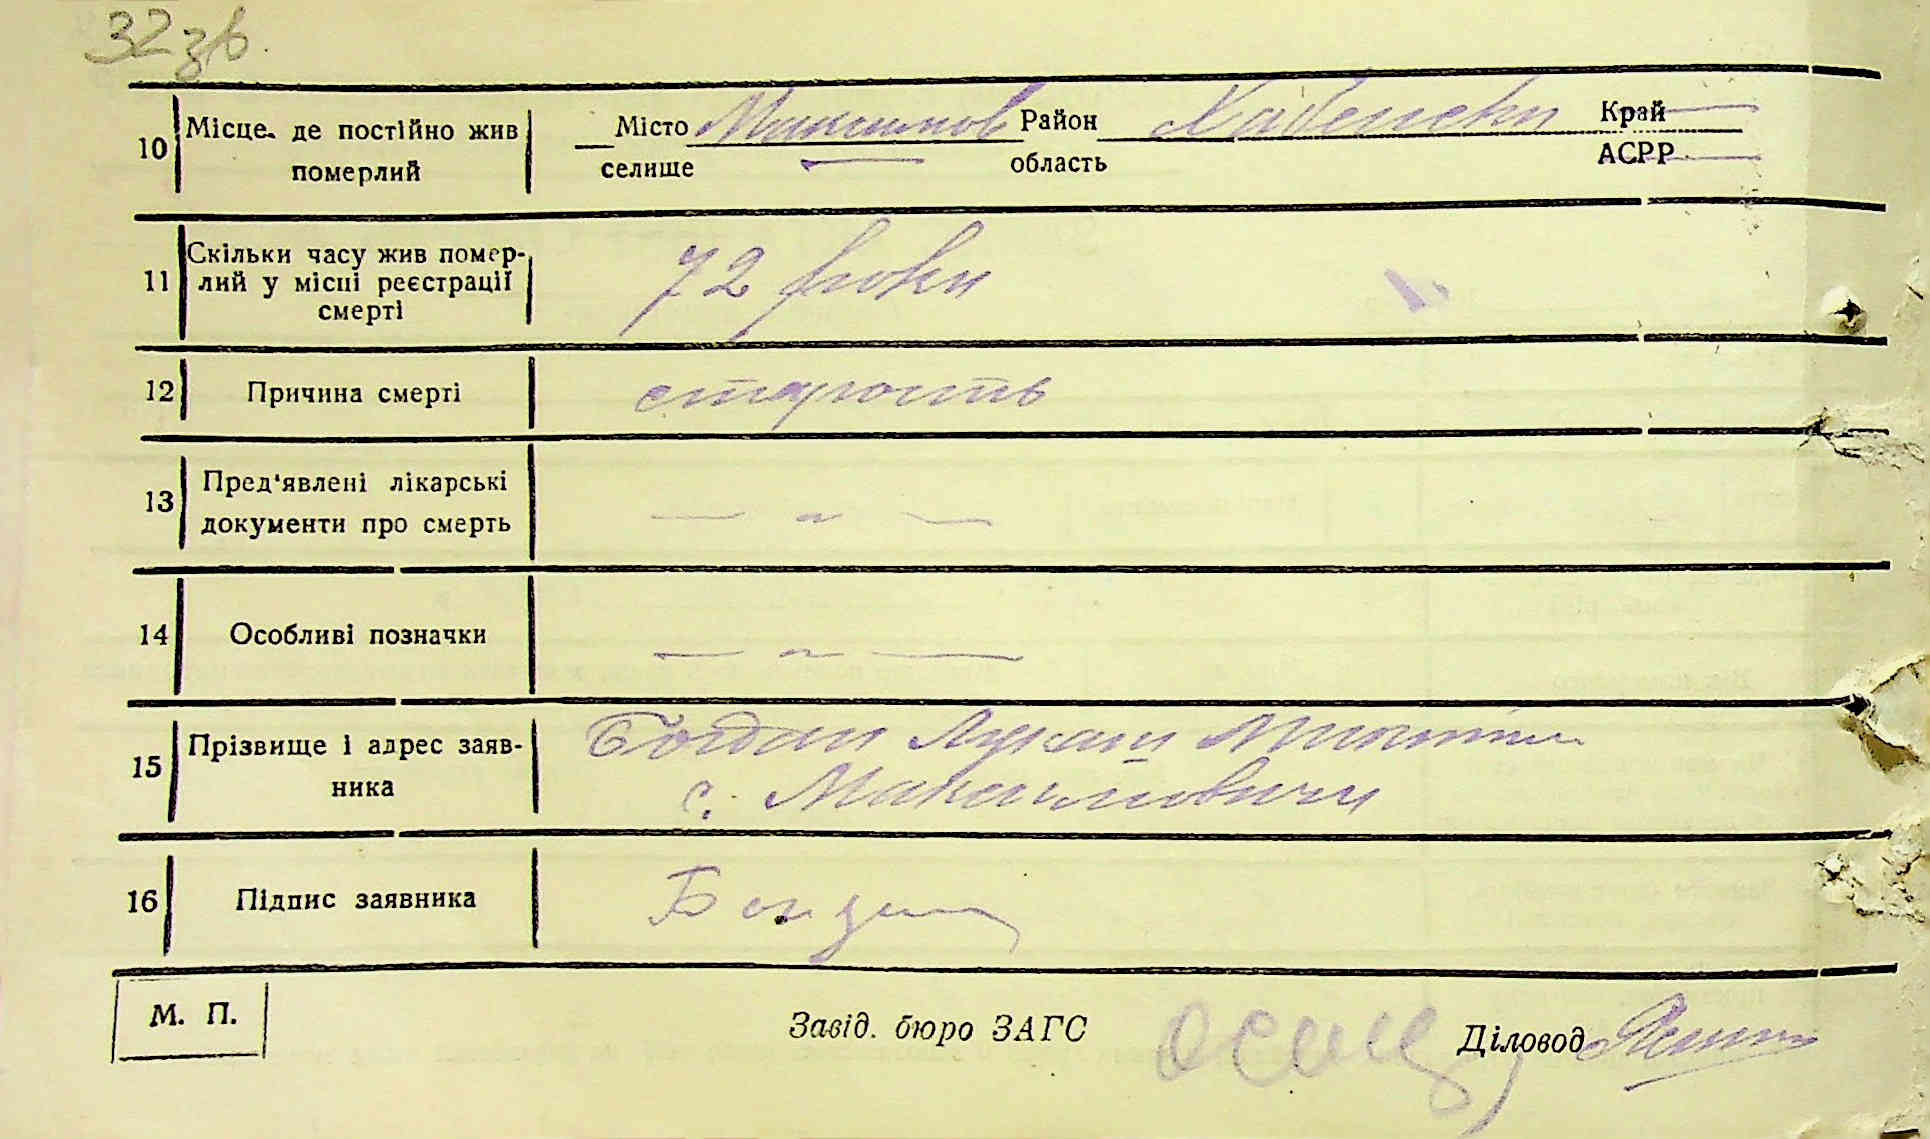 32 зв.
10 Місце, де постійно жив Місто Максимов Район Хабенски Край
померлий селище область АСРР
11 Скільки часу жив помер-
лий у місці реєстрації 72 роки
смерті
12 Причина смерті старость
13 Пред'явлені лікарські
документи про смерть — " —
14 Особливі позначки — " —
15 Прізвище і адрес заяв- Богдан Лукаш
ника с. Максимовичи
16 Підпис заявника
М. П. Завід. бюро ЗАГС Діловод